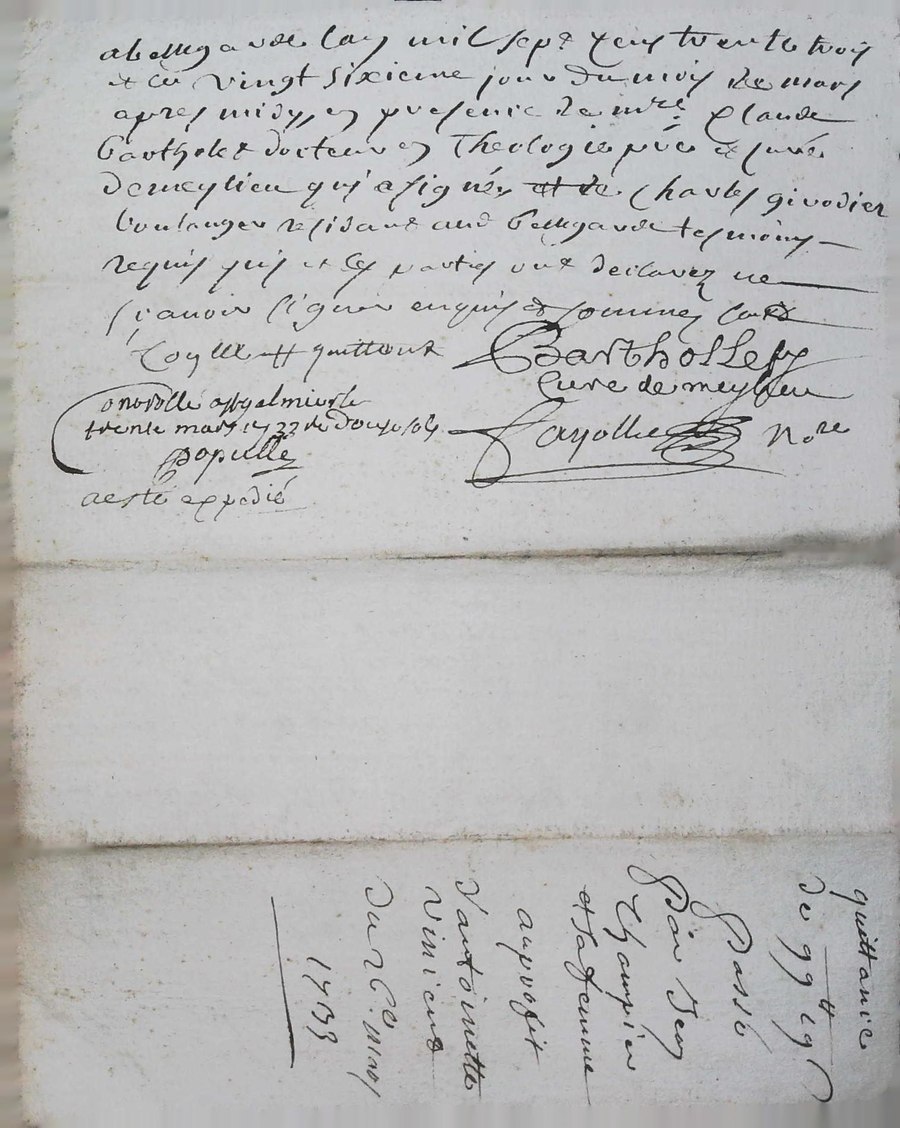 a bellegarde lan mil sept cens trente trois
et le vingt sixieme jour du mois de mars
apres midy, en presence de mre. Claude
Bartholet docteur en Theologie prêe et curé
de meylieu qui a signé, et de Charles girodier
boulanger residant aud bellegarde tesmoins
requis qui et les parties ont declarez ne
sçavoir signer enquis et sommes
quittent
Bartholley
Cure de meylieu
Controllé a St galmier le
trente mars 1733 re douze sols
Fayolle Nore
Populle
a esté expedié
quittance
de 99
Passé
Par Jean
Champier
et sa femme
au profit
dantoinette
Vinicent
du 26e mars
1733